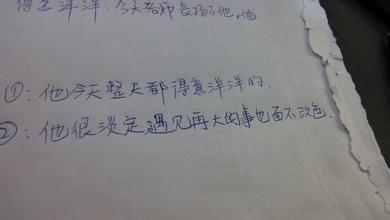 得意洋洋:今天老师表扬了他,他
①:他今天整天都得意洋洋的.
②:他很淡定遇见再大的事也面不改色.